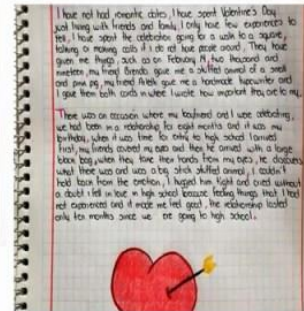 I have not had romantic dates, I have spent Valentine's Day
just being with friends and family, I only have few experiences to
tell, I have spent the celebration going for a walk to a square,
talking or making calls if I do not have people around. They have
given me things, such as on February 14, two thousand and
nineteen, my friend Brenda gave me a stuffed animal of a small
and pink pig, my friend gave me a handmade typewriter and
I gave them both cards where I wrote how important they are to my.
There was an occasion where my boyfriend and I were celebrating,
we had been in a relationship for eight months and it was my
birthday, when it was time for entry to high school I arrived
first, my friends covered my eyes and then he arrived with a large
black bag, when they took their hands from my eyes, he discovers
what there was and was a big stick stuffed animal, I couldn't
hold back from the emotion, I hugged him tight and cried without
a doubt I fell in love in high school because feeling things that I had
not experienced and it made me feel good, the relationship lasted
only ten months since we are going to high school.